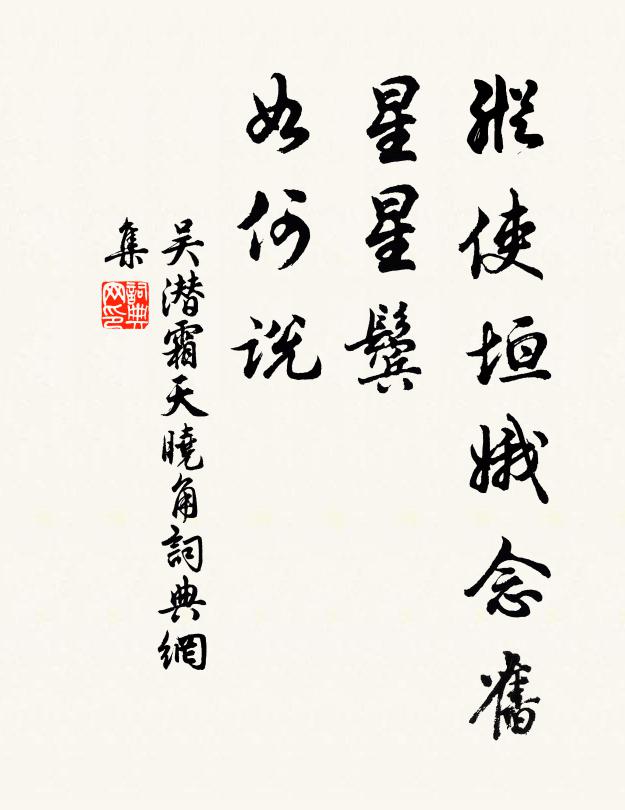 縱使垣娥念舊
星星鬓
如何說
吴潜霜天曉角詞典網
集
詞典
网印